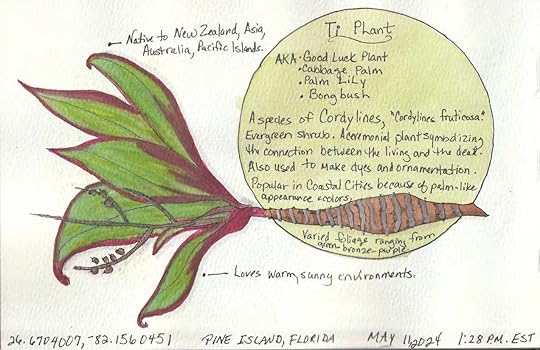 Ti Plant
• Native to New Zealand, Asia,
Australia, Pacific Islands.
AKA • Good Luck Plant
• Cabbage Palm
• Palm Lily
• Bong bush
A species of Cordylines, "Cordylines fruticosa."
Evergreen shrub. A ceremonial plant symbolizing
the connection between the living and the dead.
Also used to make dyes and ornamentation.
Popular in Coastal Cities because of palm-like
appearance & colors.
Varied foliage ranging from
green-bronze-purple.
• Loves warm, sunny environments.
26.6704007, -82.1560451 PINE ISLAND, FLORIDA MAY 11, 2024 1:28 P.M. EST